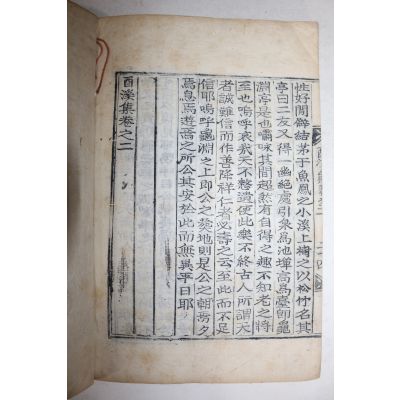 性好閒僻結茅于魚鳳之小溪上樹之以松竹名其
亭曰二友又得一幽絕處引泉為池墠高為臺師龜
淵亭是也嘯咏其間超然有自得之趣不知老之將
至也嗚呼哀哉天不憖遺使此樂不終古人所謂天
者誠難信而作善降祥仁者必壽之云至此而不足
信耶嗚呼龜淵之上即公之葬地則是公之朝焉夕
焉息焉遊焉之所公其安於此而無異平日耶
酉溪集卷之二